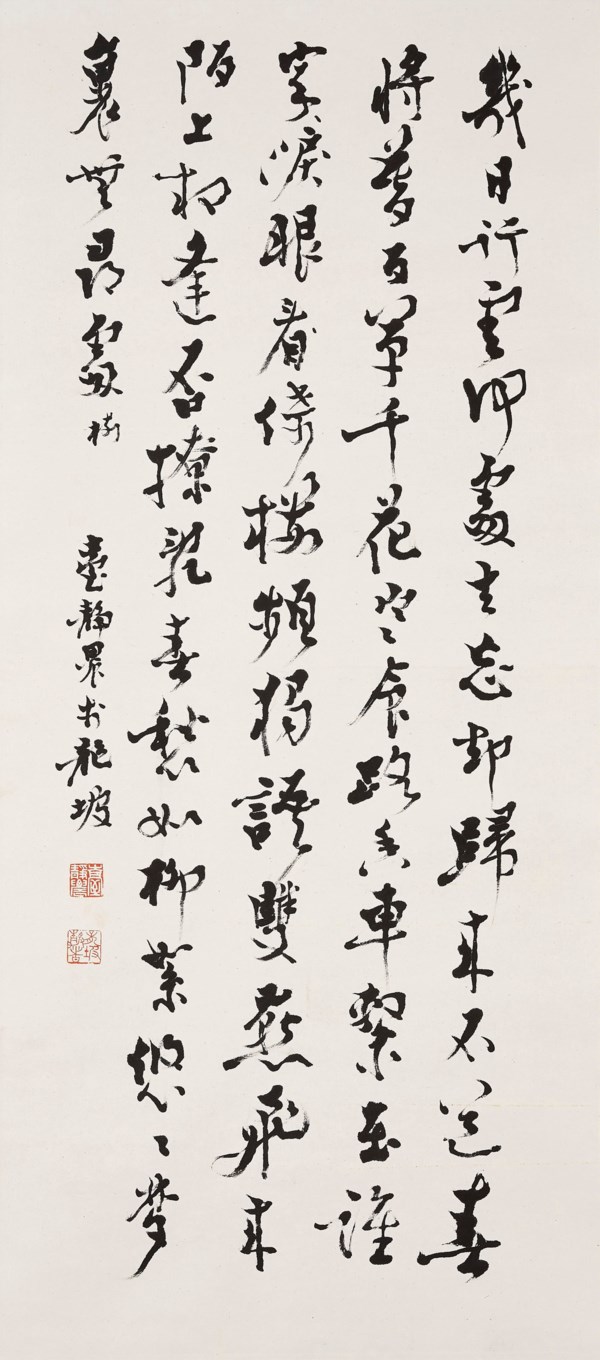 幾日行雲何處去忘却歸來不道春
將暮百草千花寒食路香車繫在誰
家淚眼看倚樓頻獨語雙燕飛來
陌上相逢否撩亂春愁如柳絮悠々夢
裏無尋處樹
臺靜農於龍坡
臺靜農